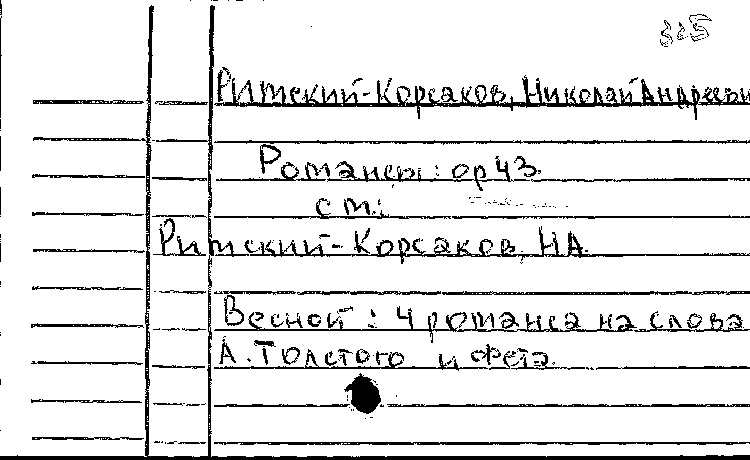 325
Римский-Корсаков, Николай Андреевич
Романсы: ор 43.
см:
Римский-Корсаков, НА.
Весной : 4 романса на слова
А. Толстого и Фета.